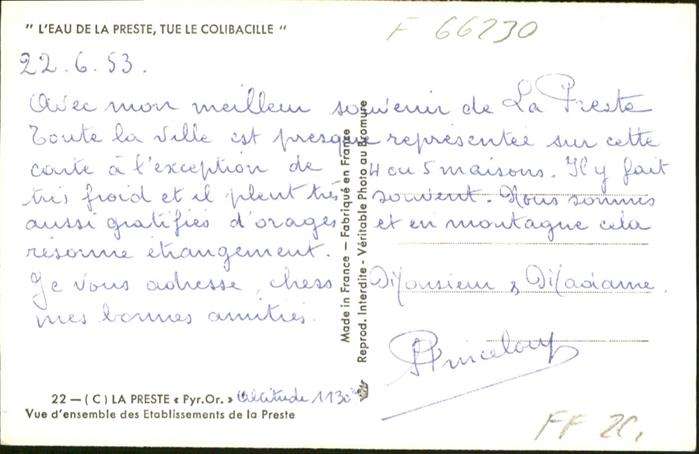 " L'EAU DE LA PRESTE, TUE LE COLIBACILLE "
F 66230
22.6.53.
Avec mon meilleur souvenir de La Preste
Toute la ville est presque représentée sur cette
carte à l'exception de 4 ou 5 maisons. Il y fait
très froid et il pleut très souvent. Nous sommes
aussi gratifiés d'orages et en montagne cela
résonne étrangement.
Je vous adresse, chers Monsieur & Madame
mes bonnes amitiés.
Made in France — Fabriqué en France
Reprod. Interdite - Véritable Photo au Bromure
22 — ( C ) LA PRESTE « Pyr.Or. » altitude 1130
Vue d'ensemble des Etablissements de la Preste
FF 20,